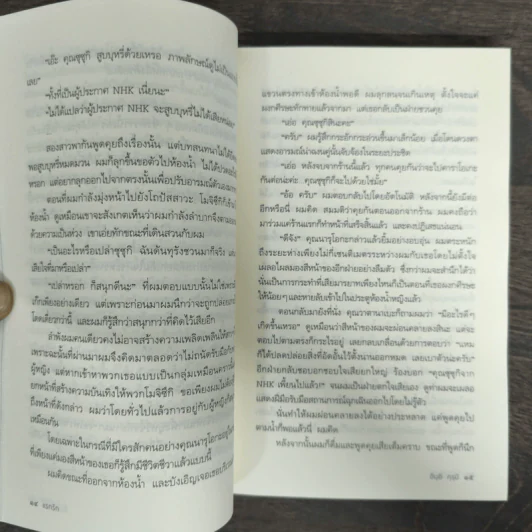 "เอ๊ะ คุณซุซูกิ สูบบุหรี่ด้วยเหรอ ภาพลักษณ์ดูไม่เป็น
เลย"
"ทั้งที่เป็นผู้ประกาศ NHK เนี่ยนะ"
"ไม่ได้แปลว่าผู้ประกาศ NHK จะสูบบุหรี่ไม่ได้เสียหน่อย
สองสาวพากันพูดคุยถึงเรื่องนั้น แต่บทสนทนาไม่ได้
พอสูบบุหรี่หมดมวน ผมก็ลุกขึ้นขอตัวไปห้องน้ำ ไม่ได้ปวด
หรอก แต่อยากลุกออกไปจากตรงนั้นเพื่อปรับอารมณ์ตัวเอง
ตอนที่ผมกำลังมุ่งหน้าไปยังโถปัสสาวะ โมจิซึกิก็
ห้องน้ำ ดูเหมือนเขาจะสังเกตเห็นว่าผมกำลังลำบากจึงตาม
ด้วยความเป็นห่วง เขาเอ่ยทักขณะที่เดินสวนกับผม
"เป็นอะไรหรือเปล่าซุซูกิ ฉันดันทุรังชวนมาก็จริง
เสียใจที่มาหรือเปล่า"
"เปล่าหรอก ก็สนุกดีนะ" ที่ผมตอบแบบนั้นไม่ใช่
เก็กเพียงอย่างเดียว แต่เพราะก่อนมาผมนึกว่าจะถูกปล่อย
โดดเดี่ยวกว่านี้ และผมก็รู้สึกว่าสนุกกว่าที่คิดไว้เสียอีก
ลำพังผมคนเดียวคงไม่อาจสร้างความเพลิดเพลินให้
เพราะฉะนั้นที่ผ่านมาผมจึงคิดมาตลอดว่าไม่ถนัดรับมือกับ
ผู้หญิง แต่หากเข้าหาพวกเธอแบบเป็นกลุ่มเหมือนคราวนี้
ยกหน้าที่สร้างความบันเทิงให้พวกโมจิซึกิ ขอเพียงผมไม่
ถึงหน้าที่ดังกล่าว ผมว่าโดยทั่วไปแล้วการอยู่กับผู้หญิงก็
เหมือนกัน
โดยเฉพาะในกรณีที่มีใครสักคนอย่างคุณนารุโกะอยู่
ที่เพียงแค่มองสีหน้าของเธอก็รู้สึกมีชีวิตชีวาแล้วแบบนี้
ผมคิดขณะที่ออกจากห้องน้ำ และบังเอิญเจอเธอ
๑๔
แขวนตรงทางเข้าห้องน้ำพอดี ผมลุกลนจนเกินเหตุ ตั้งใจจะแค่
ผงกศีรษะทักทายแล้วจากมา แต่เธอกลับเป็นฝ่ายชวนคุย
"เอ่อ คุณซุซูกิสินะคะ"
"ครับ" ผมรู้สึกกระอักกระอ่วนขึ้นมาเล็กน้อย เมื่อโดนดวงตา
แสดงอารมณ์น่าฉงนคู่นั้นจับจ้องในระยะประชิด
"เอ่อ หลังจบจากร้านนี้แล้ว ทุกคนคุยกันว่าจะไปคาราโอเกะ
กันต่อนะค่ะ คุณซุซูกิก็จะไปด้วยใช่มั้ย"
"อ้อ ครับ" ผมตอบกลับไปโดยอัตโนมัติ หลังจากนี้ยังมีต่อ
อีกหรือนี่ ผมคิด สมมติว่าคุยกันตอนออกจากร้าน ผมคงถือว่า
มาร่วมแค่ร้านแรกก็ทำหน้าที่เสร็จสิ้นแล้ว และคงปฏิเสธแน่นอน
"ดีจัง" คุณนารุโกะกล่าวแล้วยิ้มอย่างอบอุ่น ผมตระหนัก
ถึงระยะห่างเพียงไม่กี่เซนติเมตรระหว่างผมกับเธอโดยไม่ตั้งใจ
เผลอไผลมองสีหน้าของอีกฝ่ายอย่างลืมตัว ซึ่งกว่าผมจะสำนึกได้ว่า
นั่นเป็นการกระทำที่เสียมารยาทเพียงไหนก็เป็นตอนที่เธอผงกศีรษะ
ให้น้อยๆ และหายลับเข้าไปในประตูห้องน้ำหญิงแล้ว
ตอนกลับมายังที่นั่ง คุณวาตานาเบะก็ถามผมว่า "มีอะไรดีๆ
เกิดขึ้นเหรอ" ดูเหมือนว่าสีหน้าของผมจะผ่อนคลายลงสินะ แต่จะ
ตอบไปตามตรงก็กระไรอยู่ เลยกลบเกลื่อนด้วยการตอบว่า "แหม
ก็ได้ปลดปล่อยสิ่งที่อัดอั้นไว้ตั้งนานออกหมด เลยเบาตัวน่ะครับ"
อีกฝ่ายกลับชอบอกชอบใจเสียยกใหญ่ ร้องบอก "คุณซุซูกิจาก
NHK เพี้ยนไปแล้ว!" จนผมเป็นฝ่ายตกใจเสียเอง ดูท่าผมจะเผลอ
แสดงฝีมือรับมือสถานการณ์ฉุกเฉินออกไปโดยไม่รู้ตัว
นั่นทำให้ผมผ่อนคลายลงได้อย่างประหลาด แค่พูดคุยไป
ตามน้ำก็พอแล้วนี่ ผมคิด
หลังจากนั้นผมก็ดื่มและพูดคุยเสียเต็มคราบ ขณะที่พูดก็นึก
อินุอิ คุรุมิ ๑๕